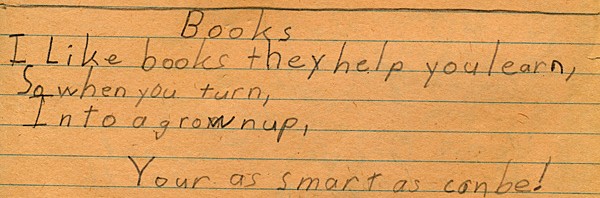 Books
I Like books they help you learn,
So when you turn,
Into a grownup,
Your as smart as can be!